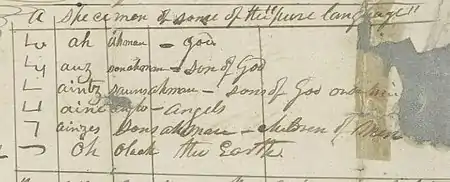 a Specimen of some of the "pure language"
ah ahman - god
auz sonahman - son of God
aintz saunsahman - sons of God
aine anglo - angels
ainzes sons ahman - children of Men
Oh olack the Earth